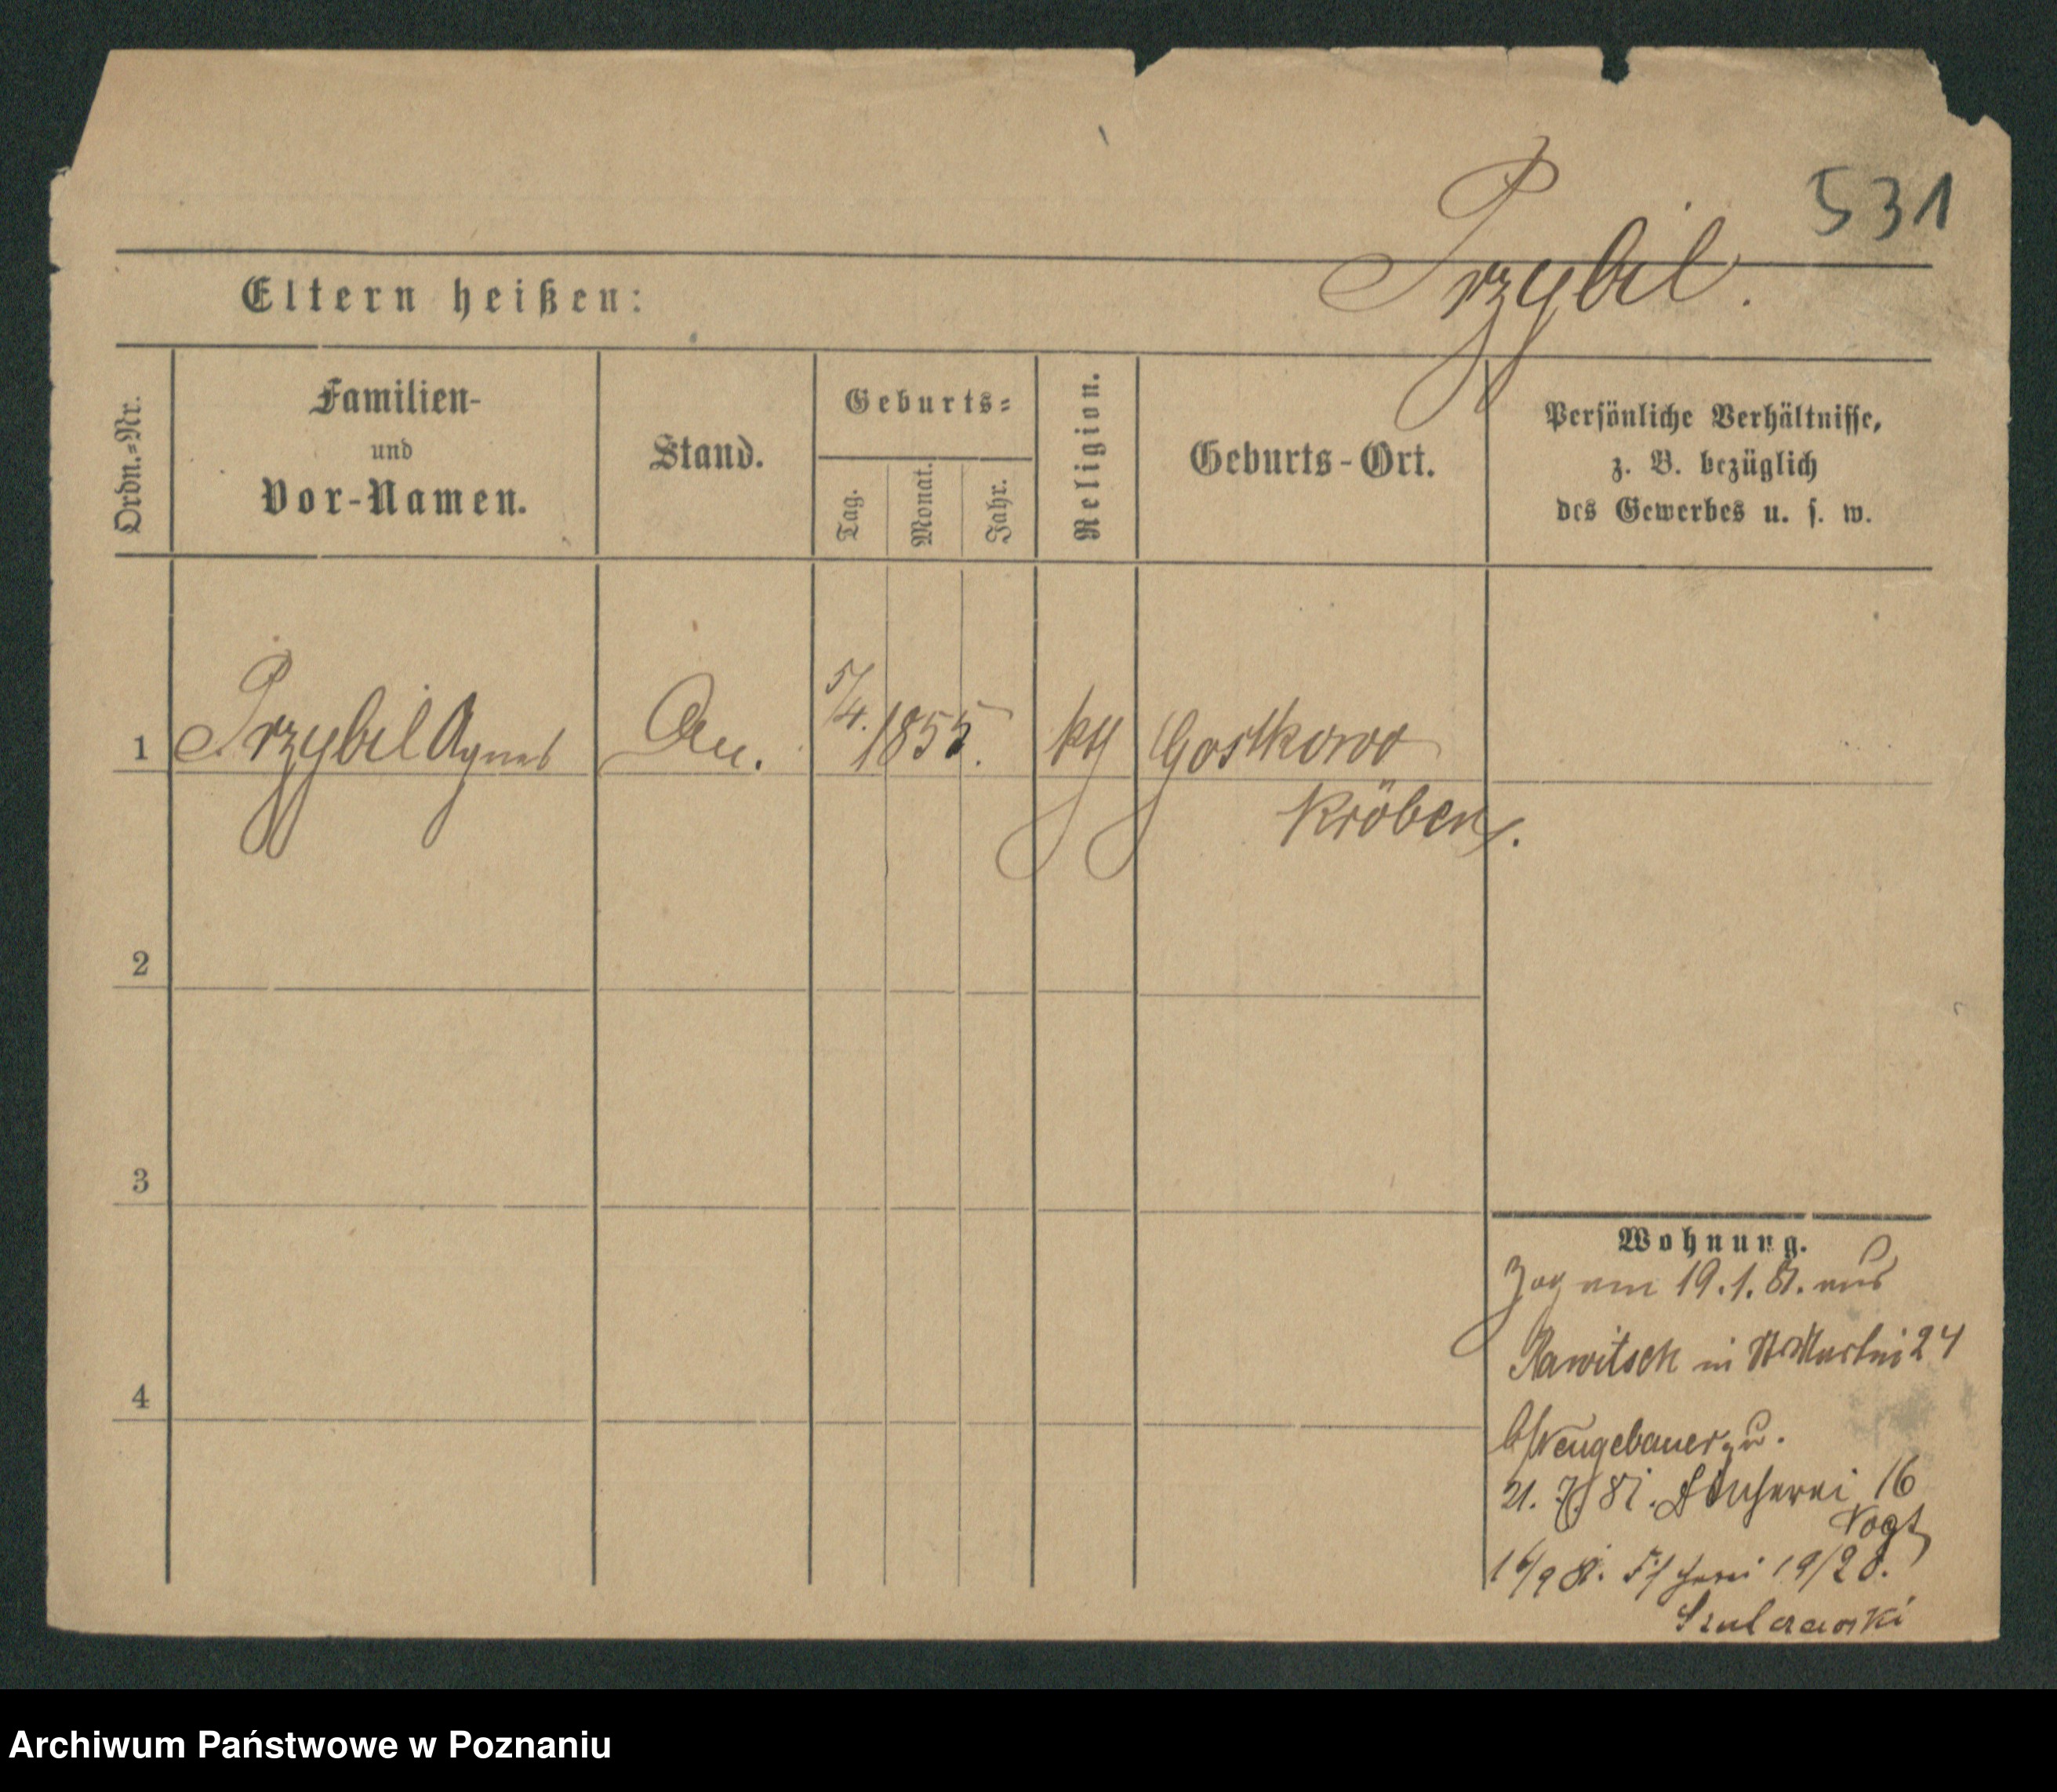 531
Przybil.
Eltern heißen:
Ordn.-Nr.
Familien-
und
Vor-Namen.
Stand.
Geburts-
Tag.
Monat.
Jahr.
Religion.
Geburts-Ort.
Persönliche Verhältnisse,
z. B. bezüglich
des Gewerbes u. s. w.
1 Przybil Agnes 5/4. 1855. kth Gostkowo
Kröben.
2
3
4
Wohnung.
Zog am 19.1.81. aus
Rawitsch in St Martin 24
b/Neugebauer zu.
21. 7/81. 16
Vogt
16/9 81. Fischerei 19/20.
Szulczewski
Archiwum Państwowe w Poznaniu